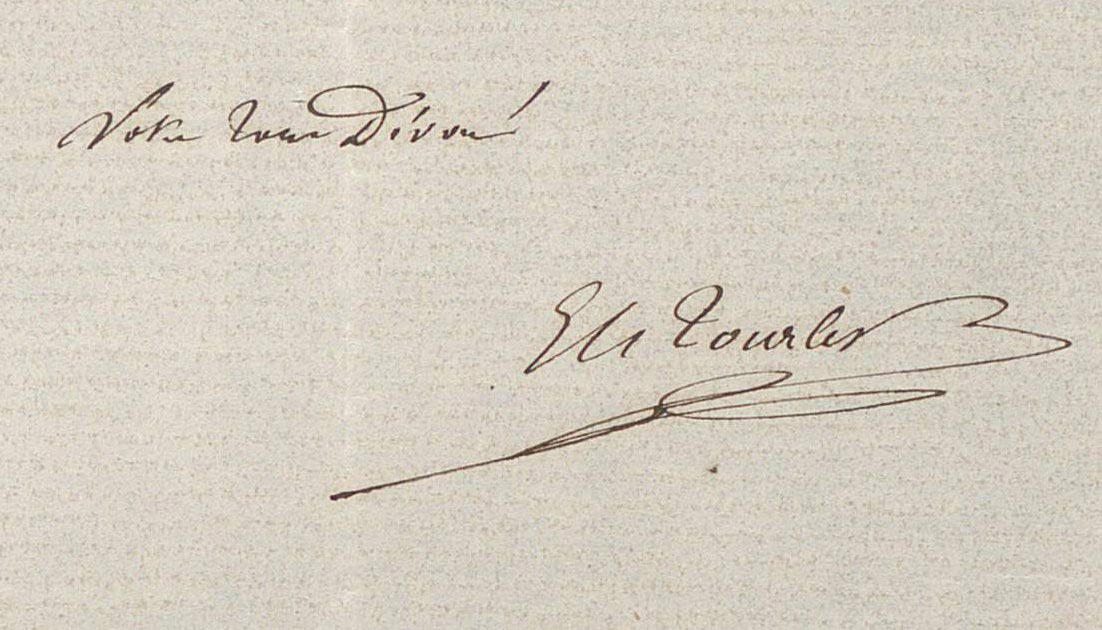 Votre tout Dévoué
Ch Tourlet